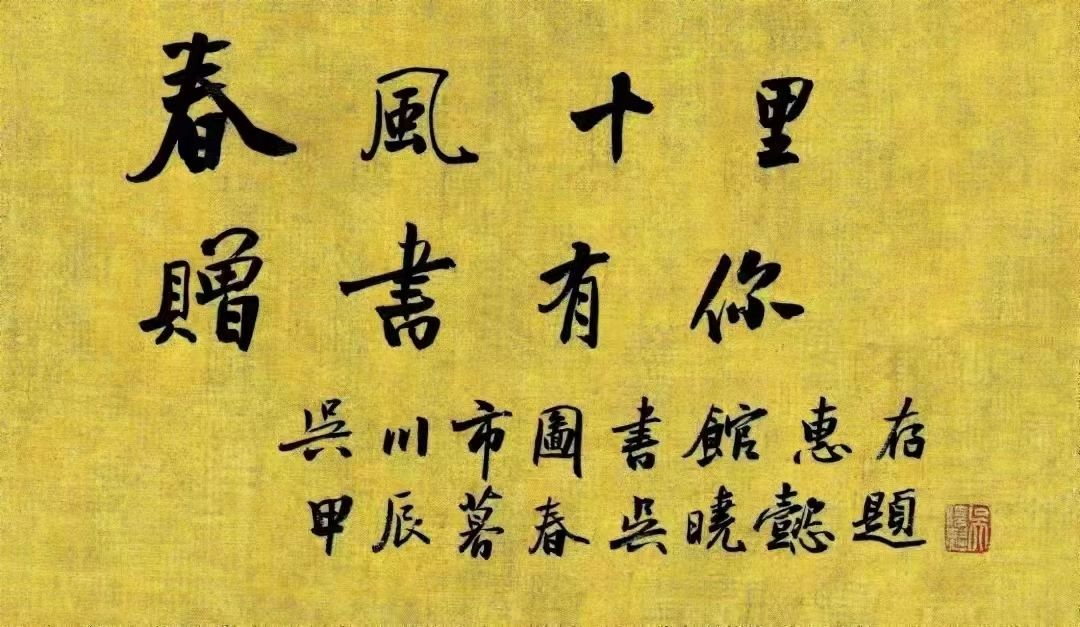 春風十里
贈書有你
吳川市圖書館惠存
甲辰暮春吳曉懿題